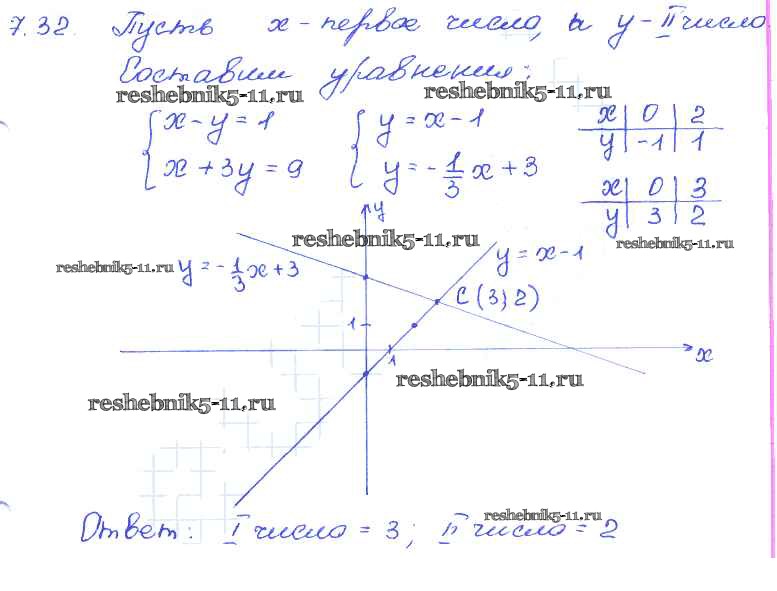 7.32. Пусть x - первое число, а y - II число
Составим уравнения:
reshebnik5-11.ru reshebnik5-11.ru
{ x - y = 1 { y = x - 1
{ x + 3y = 9 { y = -1/3 x + 3
x | 0 | 2
y | -1 | 1
x | 0 | 3
y | 3 | 2
reshebnik5-11.ru
y
reshebnik5-11.ru
reshebnik5-11.ru y = -1/3 x + 3
y = x - 1
C (3; 2)
1
1
x
reshebnik5-11.ru
reshebnik5-11.ru
reshebnik5-11.ru
Ответ: I число = 3; II число = 2